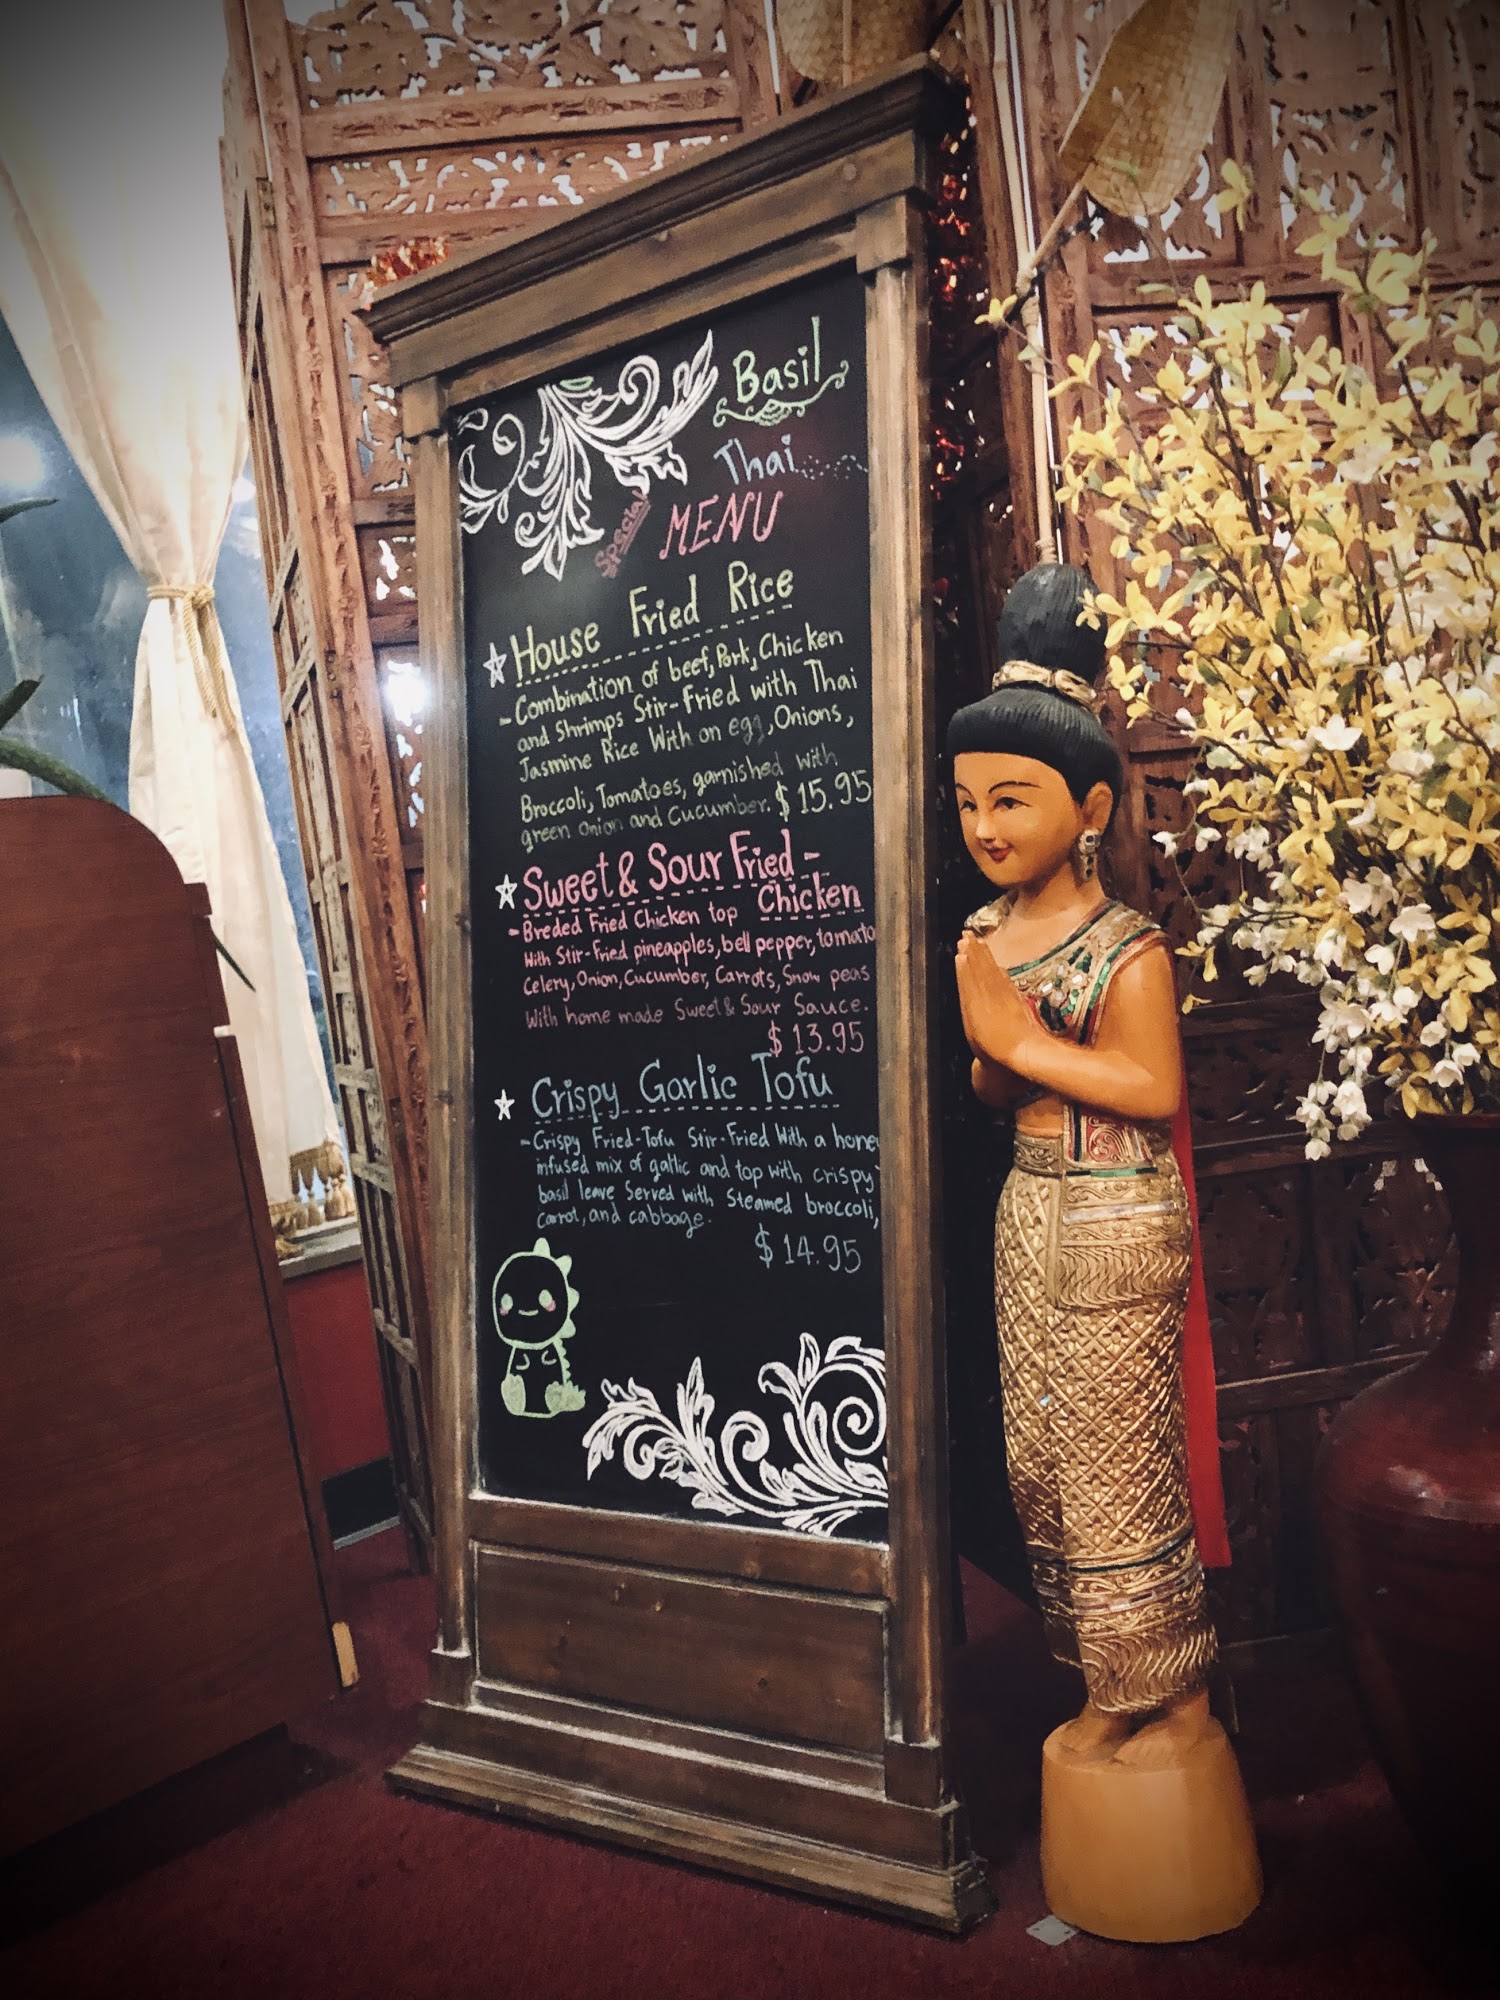 Basil
Thai
Special MENU
House Fried Rice
- Combination of beef, Pork, Chicken
and Shrimps Stir-Fried with Thai
Jasmine Rice With an egg, Onions,
Broccoli, Tomatoes, garnished with
green onion and Cucumber. $ 15.95
Sweet & Sour Fried -
Chicken
- Breded Fried Chicken top
With Stir-Fried pineapples, bell pepper, tomato
Celery, Onion, Cucumber, Carrots, Snow peas
With home made Sweet & Sour Sauce.
$ 13.95
Crispy Garlic Tofu
- Crispy Fried-Tofu Stir-Fried With a hone
infused mix of gallic and top with crispy
basil leave Served with Steamed broccoli,
Carrot, and cabbage.
$ 14.95